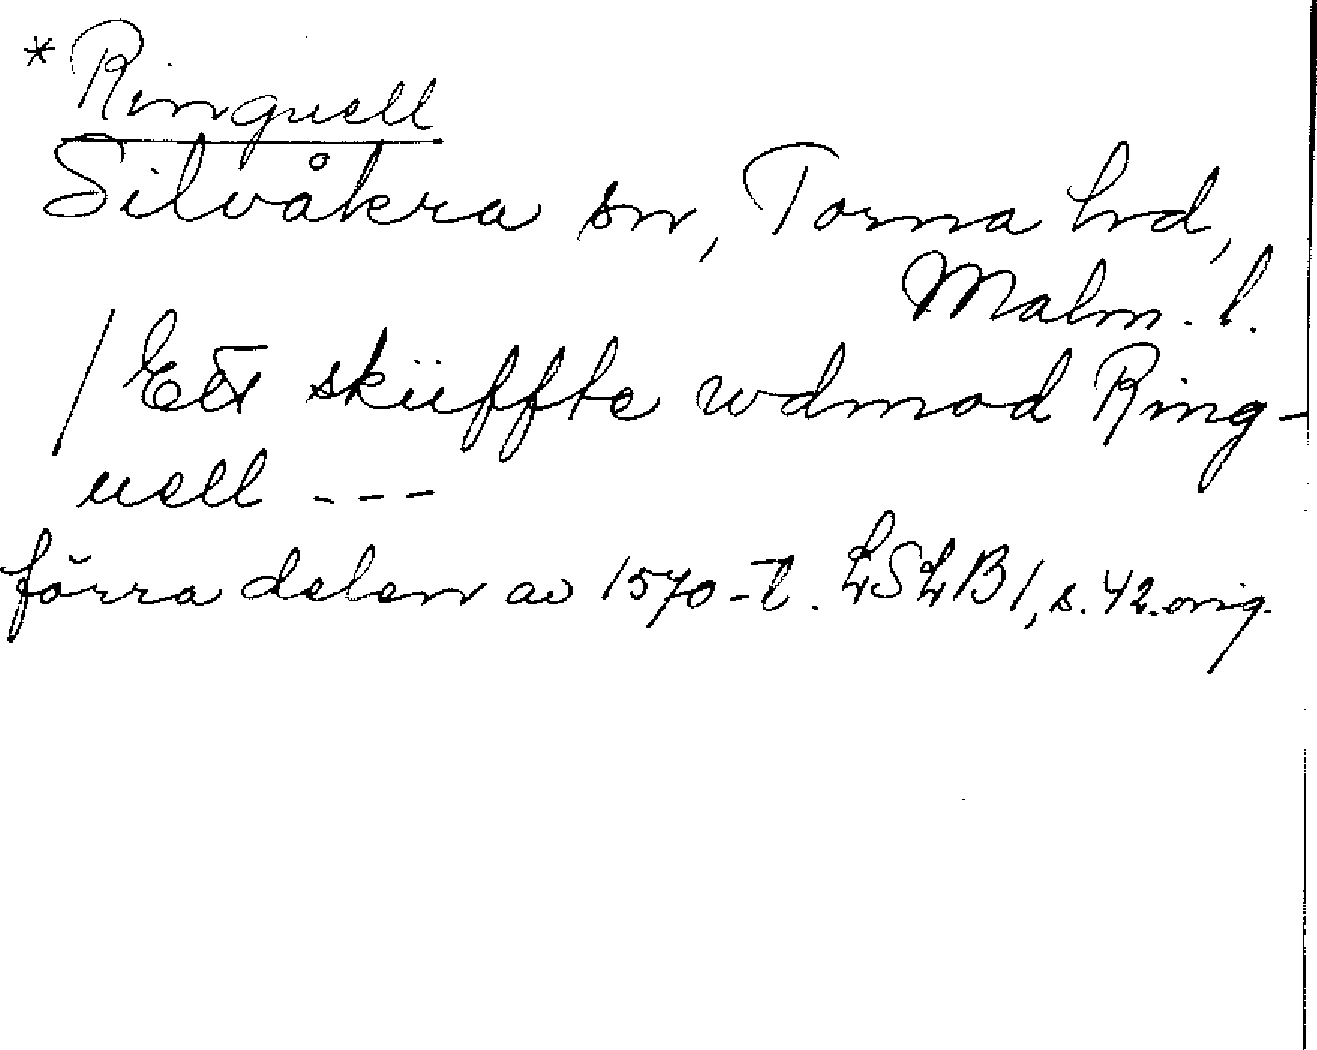 * Ringuell
Silvåkra sn, Torna hd,
Malm. l.
/ Ett sküffte wdmod Ring-
uell ---
förra delen av 1570-t. LSLB 1, s. 42. orig.